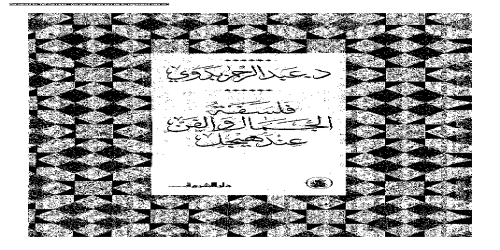 د. عبد الرحمن بدوي
فلسفة
الجمال والفن
عند هيجل
دار الشروق